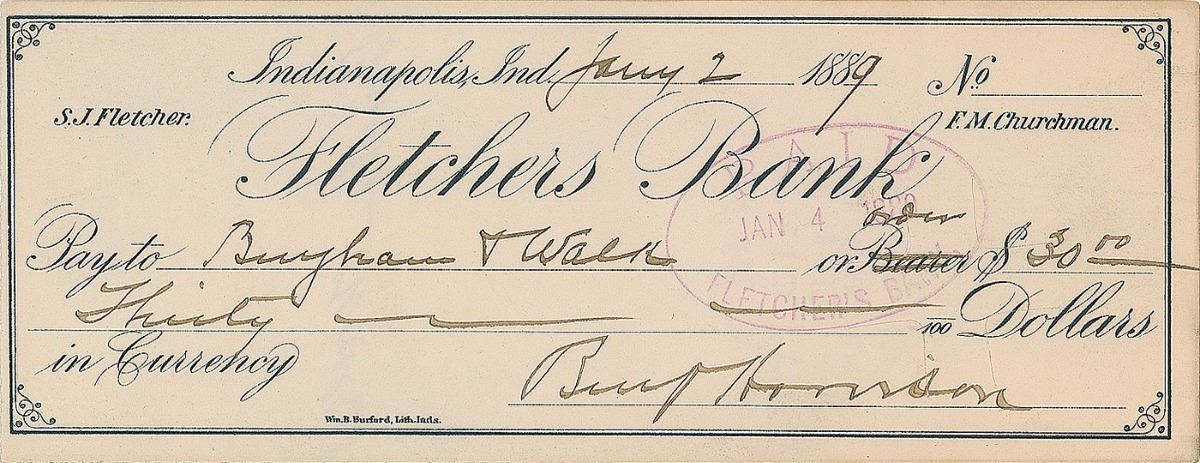 Indianapolis, Ind. Jany 2 1889 No
S.J. Fletcher. F.M. Churchman.
Fletchers Bank
PAID
JAN 4 1889
FLETCHER'S BANK
order
Pay to Bingham & Walk or Bearer $ 30 00
Thirty 100 Dollars
in Currency
Benj Harrison
Wm. B. Burford, Lith. Inds.